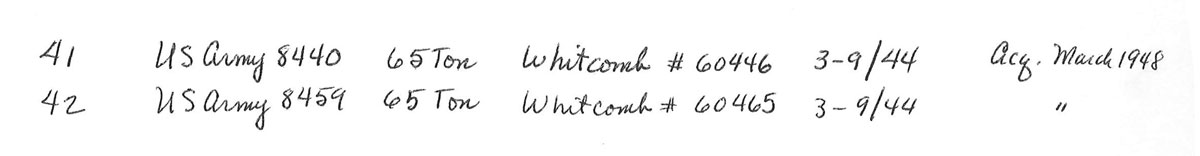 41 US Army 8440 65 Ton Whitcomb # 60446 3-9/44 Acq. March 1948
42 US Army 8459 65 Ton Whitcomb # 60465 3-9/44 "